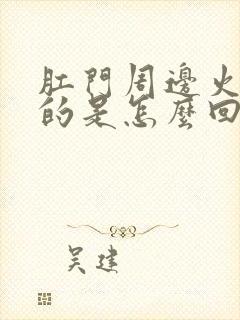 肛門周邊火
的是怎麼回
吴建